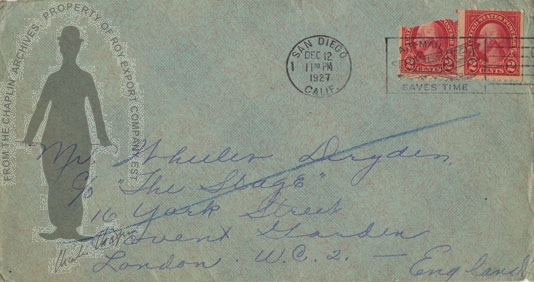 FROM THE CHAPLIN ARCHIVES. PROPERTY OF ROY EXPORT COMPANY EST.
Charles Chaplin
1
SAN DIEGO
DEC 12
11 PM
1927
CALIF.
AIR MAIL
SAVES TIME
UNITED STATES POSTAGE
2 CENTS 2
Mr. Wheeler Dryden,
c/o "The Stage"
16 York Street
Covent Garden
London. W.C.2. — England